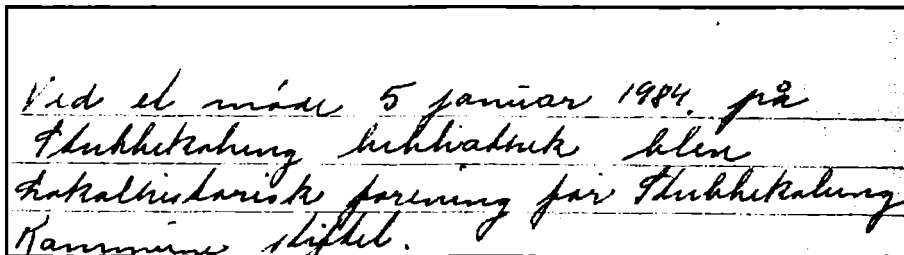 Ved et møde 5 januar 1984. på
Stubbekøbing bibliotek blev
Lokalhistorisk forening for Stubbekøbing
Kommune stiftet.